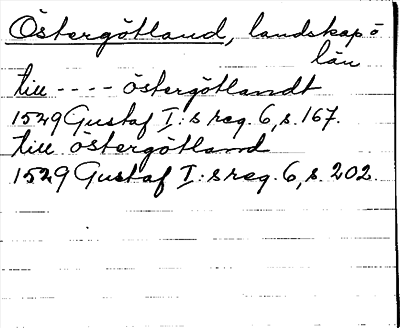 Östergötland, landskap o
län
till - - - - östergötlandt
1529 Gustaf I:s reg. 6, s. 167.
till östergötland
1529 Gustaf I:s reg. 6, s. 202